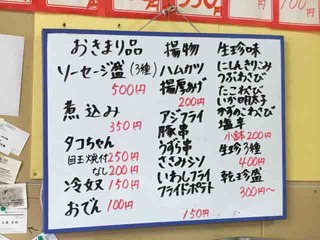 おきまり品
ソーセージ盛(3種)
500円
煮込み
350円
タコちゃん
目玉焼付250円
なし200円
冷奴 150円
おでん 100円
揚物
ハムカツ
揚厚あげ
200円
アジフライ
豚串
うずら串
ささみシソ
いわしフライ
フライドポテト
150円
生珍味
にしんきりこみ
つぶわさび
たこわさび
いか明太子
かずのこわさび
塩辛
小鉢200円
生珍3種
400円
乾珍盛
300円~
100円